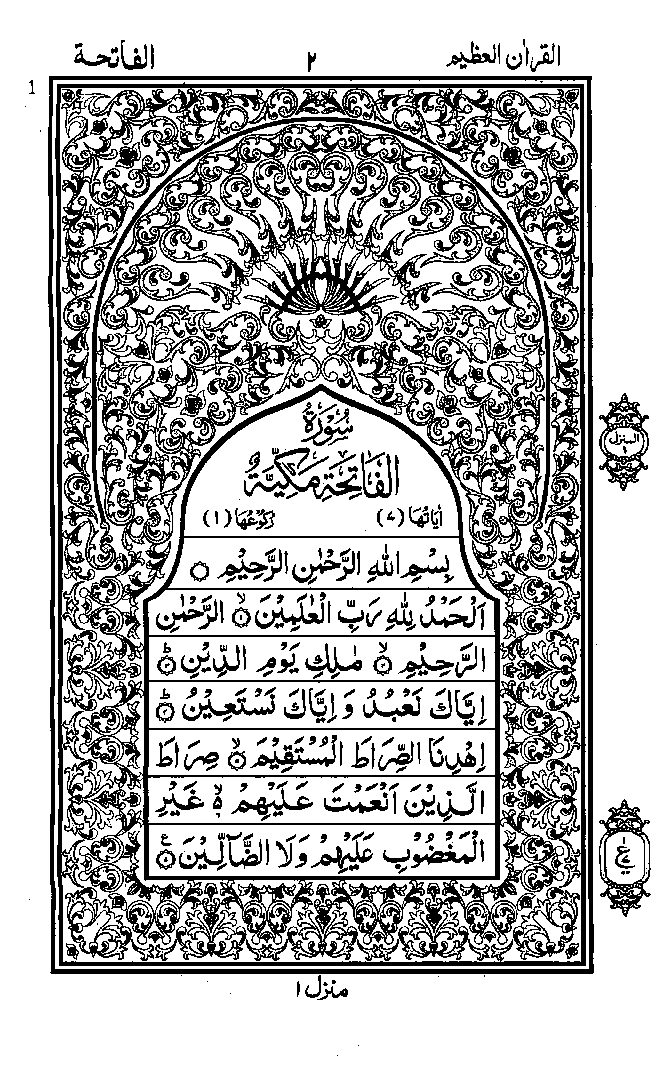 القرآن العظيم ٢ الفاتحة
1
سُورَةُ
الْفَاتِحَةِ مَكِّيَّةٌ
اٰيَاتُهَا (٧) رُكُوعُهَا (١)
المنزل ١
بِسْمِ اللّٰهِ الرَّحْمٰنِ الرَّحِيْمِ ۝
اَلْحَمْدُ لِلّٰهِ رَبِّ الْعٰلَمِيْنَ ۝١ۙ الرَّحْمٰنِ
الرَّحِيْمِ ۝٢ۙ مٰلِكِ يَوْمِ الدِّيْنِ ۝٣ؕ
اِيَّاكَ نَعْبُدُ وَ اِيَّاكَ نَسْتَعِيْنُ ۝٤ؕ
اِهْدِنَا الصِّرَاطَ الْمُسْتَقِيْمَ ۝٥ۙ صِرَاطَ
الَّذِيْنَ اَنْعَمْتَ عَلَيْهِمْ ۙ۬ۦ غَيْرِ
الْمَغْضُوْبِ عَلَيْهِمْ وَلَا الضَّآلِّيْنَ ۝٧ع
منزل ١